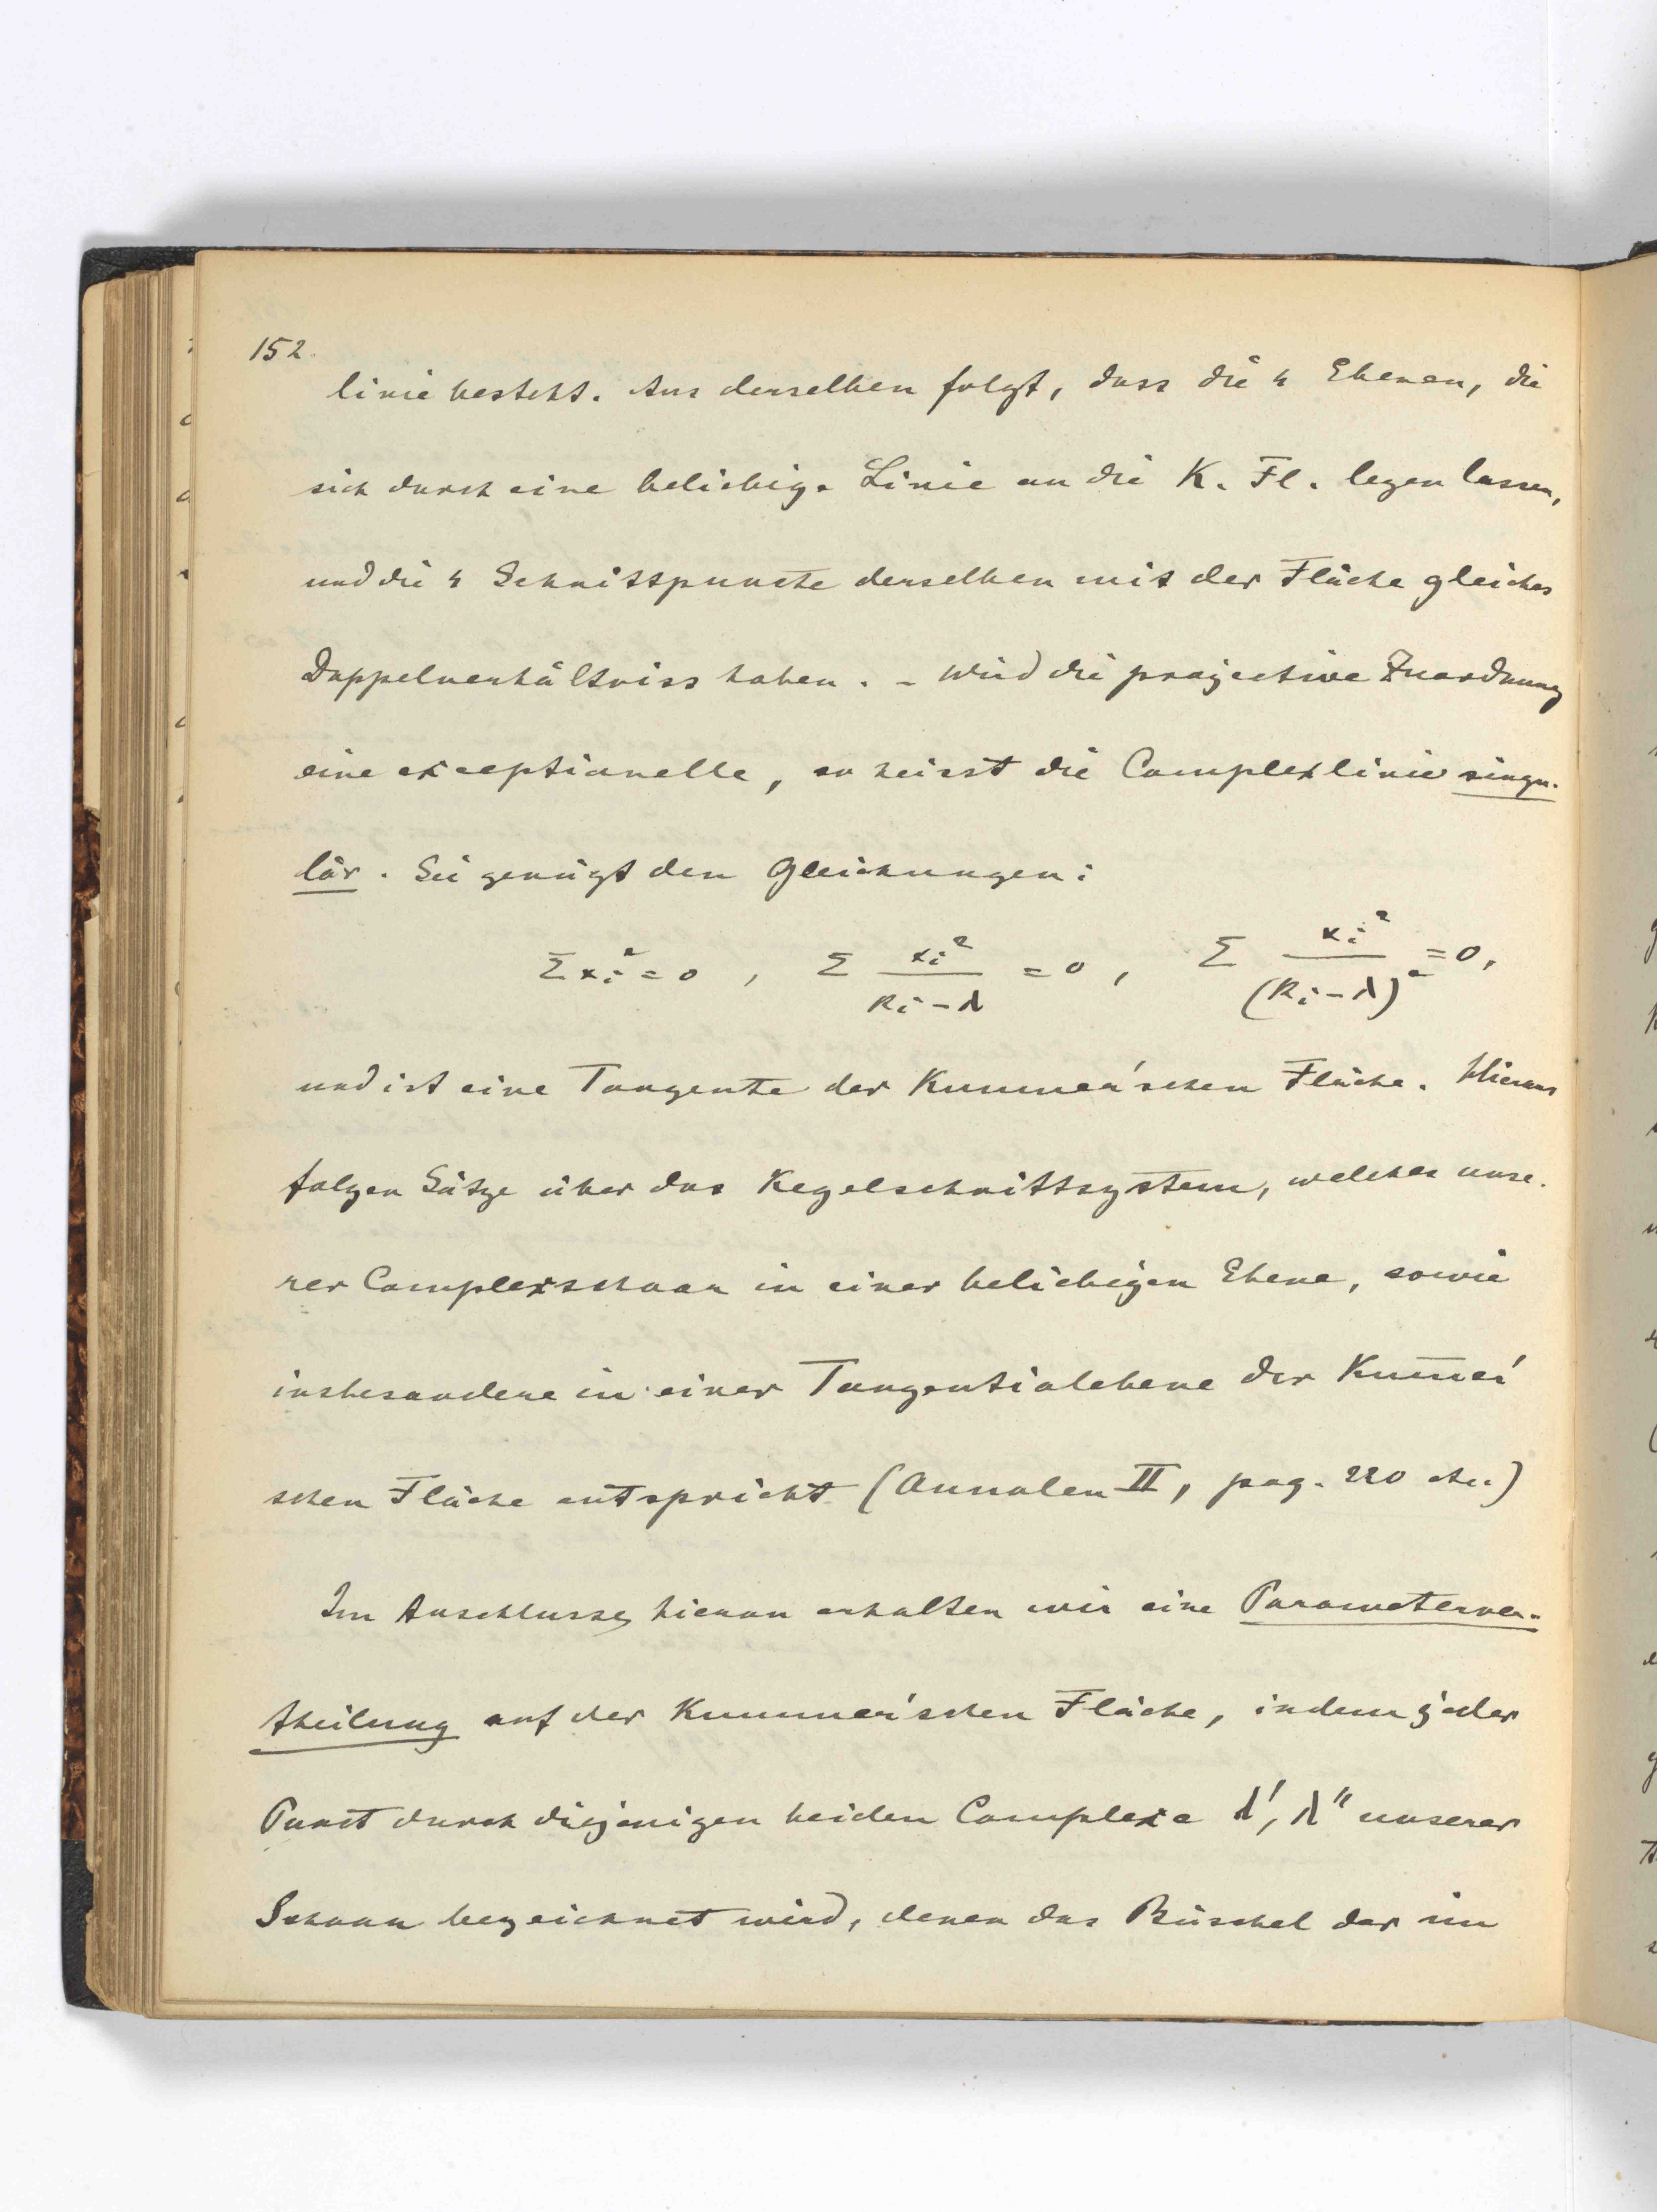 152.
linie besteht. Aus derselben folgt, dass die 4 Ebenen, die
sich durch eine beliebige Linie an die K. Fl. legen lassen,
und die 4 Schnittpuncte derselben mit der Fläche gleiches
Doppelverhältniss haben. – Wird die projective Zuordnung
eine exceptionelle, so heisst die Complexlinie singu-
lär. Sie genügt den Gleichungen:
Σ x_i^2 = 0 , Σ x_i^2/(k_i - λ) = 0 , Σ x_i^2/(k_i - λ)^2 = 0,
und ist eine Tangente der Kummer'schen Fläche. Hieraus
folgen Sätze über das Kegelschnittsystem, welches unse-
rer Complexschaar in einer beliebigen Ebene, sowie
insbesondere in einer Tangentialebene der Kum̅er'
schen Fläche entspricht (Annalen II, pag. 220 etc.)
Im Anschlusse hieran erhalten wir eine Parameterver-
theilung auf der Kummer'schen Fläche, indem jeder
Punct durch diejenigen beiden Complexe λ', λ'' unserer
Schaar bezeichnet wird, denen das Büschel der im